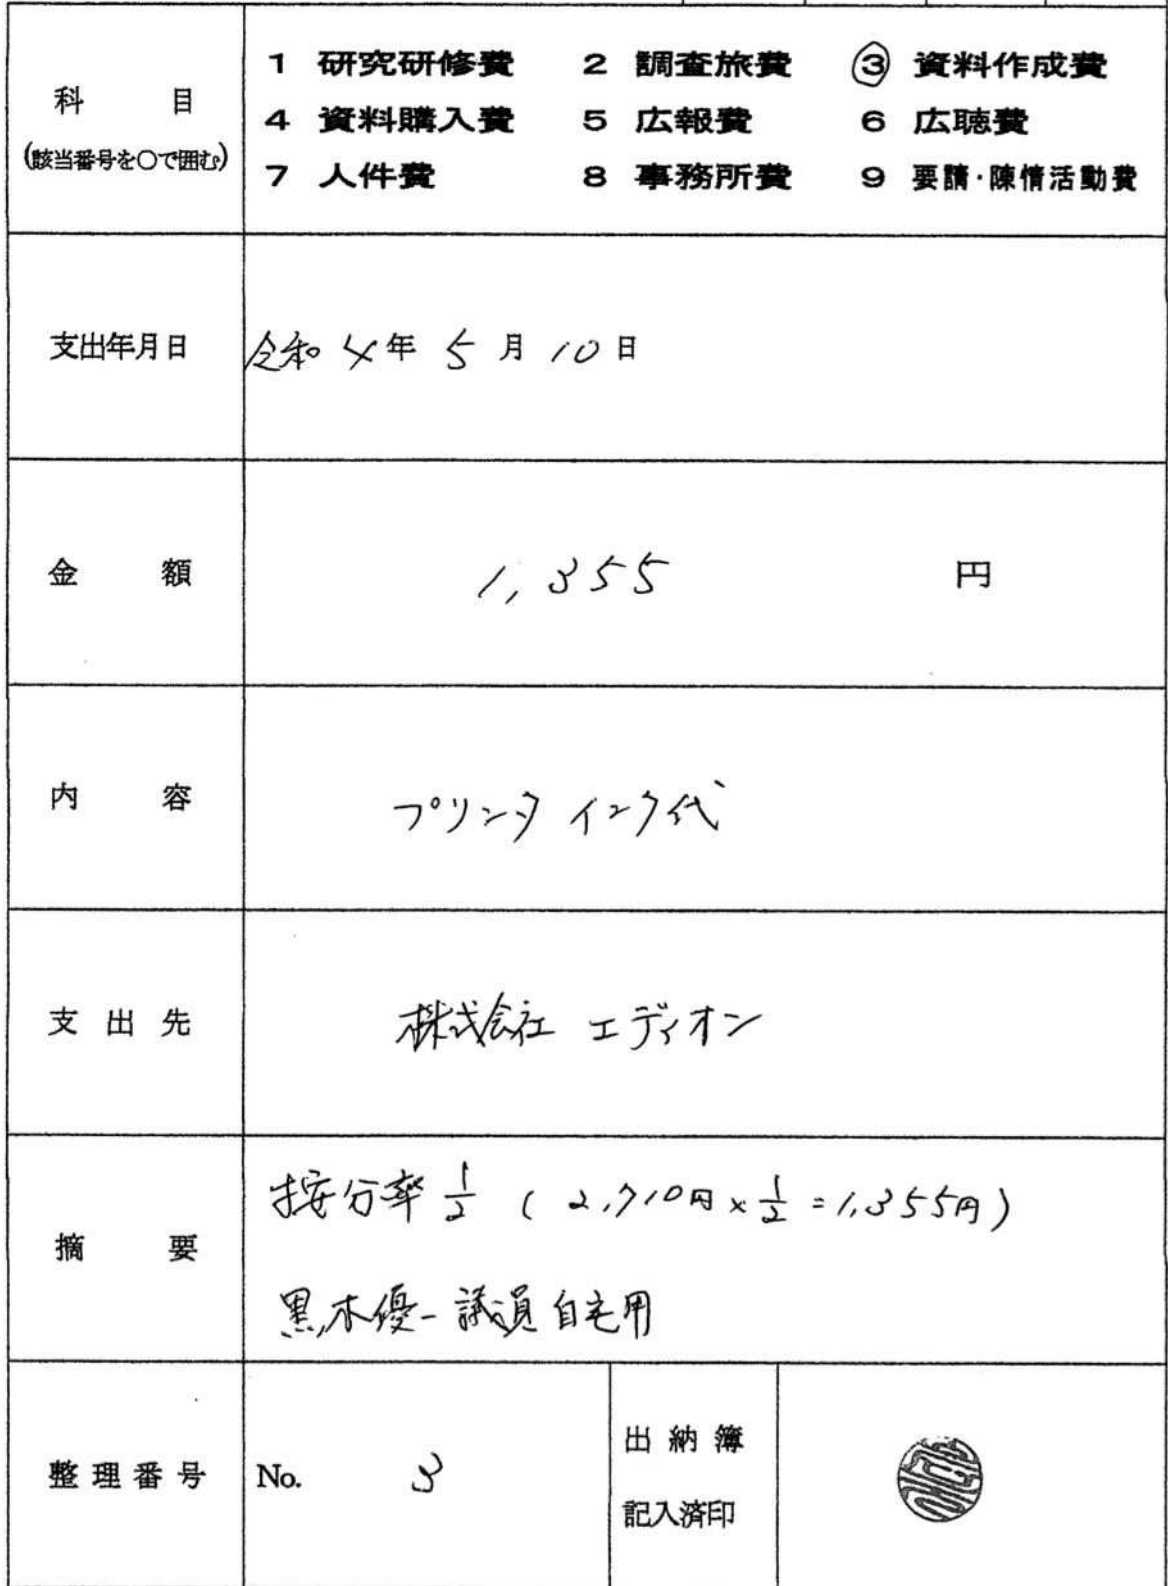 科 目
(該当番号を○で囲む)
1 研究研修費 2 調査旅費 ③ 資料作成費
4 資料購入費 5 広報費 6 広聴費
7 人件費 8 事務所費 9 要請・陳情活動費
支出年月日 令和 4年 5月 10日
金 額 1,355 円
内 容 プリンタ インク代
支 出 先 株式会社 エディオン
摘 要
按分率 1/2 ( 2,710円 × 1/2 = 1,355円)
黒木優一議員自宅用
整 理 番 号 No. 3
出 納 簿
記入済印